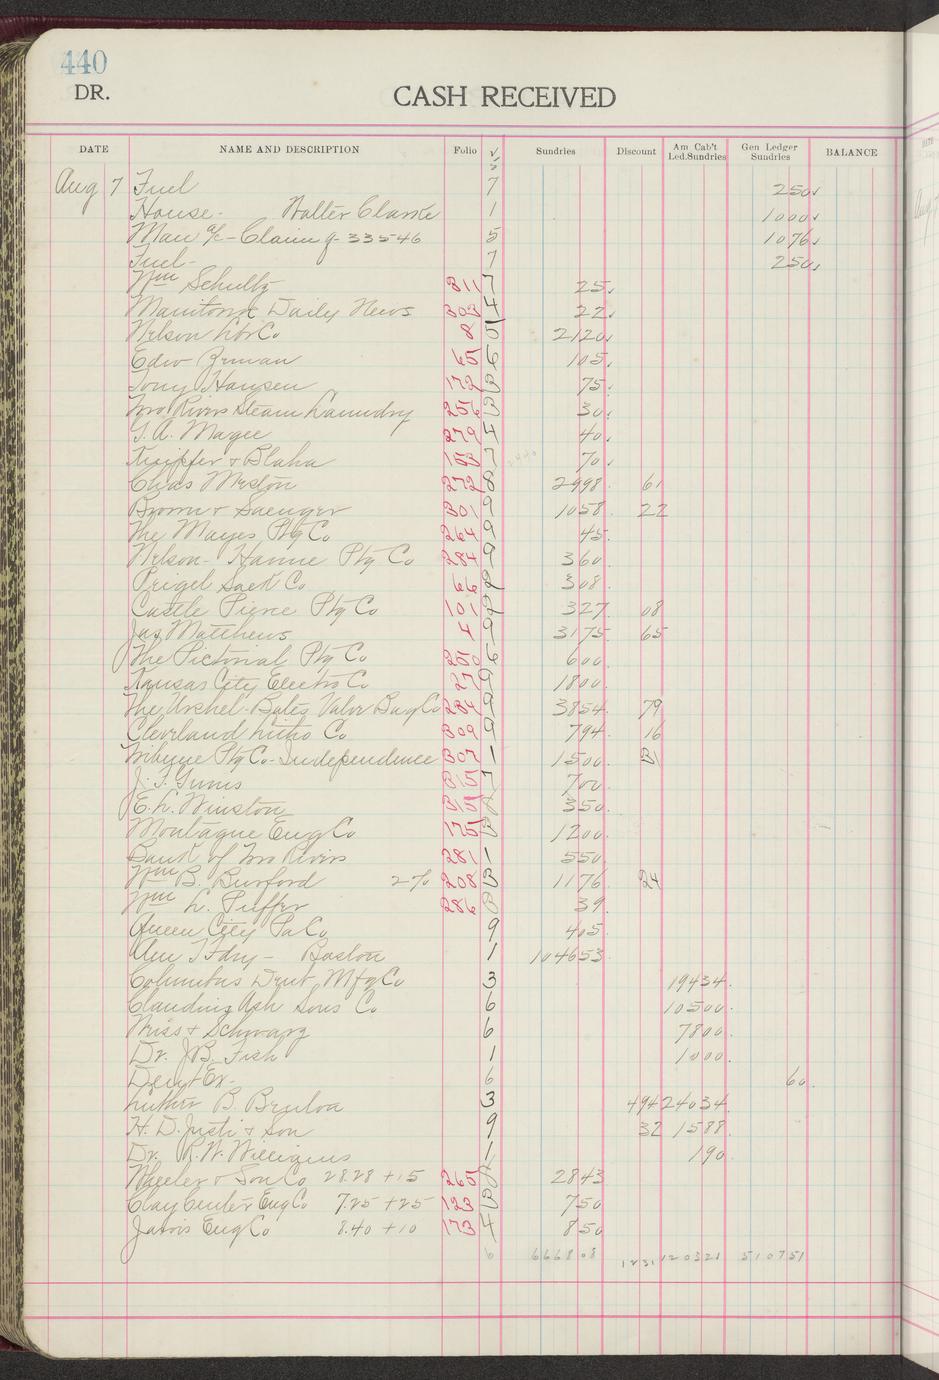 440
DR. CASH RECEIVED
DATE NAME AND DESCRIPTION Folio √ Sundries Discount Am Cab't Led.Sundries Gen Ledger Sundries BALANCE
Aug 7 Fuel 7 250
House - Walter Clarke 1 1000
Man a/c - Claim 33546 5 1076
Fuel - 7 250
Wm Schultz 311 7 25
Manitowoc Daily News 303 4 22
Nelson Co 8 5 2120
Edw 65 6 105
Tony Hansen 172 3 75
Two Rivers Steam Laundry 256 3 30
G. A. Magee 279 4 40
& Blaha 103 7 70
Chas Weston 272 8 2998 61
Brown & Saenger 301 9 1058 22
The Mayes Ptg Co 264 9 45
Nelson - Hanne Ptg Co 284 9 360
Prigel Co 66 308
Castle Pierce Ptg Co 101 9 327 08
Jas Matthews 4 9 3175 65
The Pictorial Ptg Co 6 600
Kansas City Electro Co 27 9 1800
The Urshel-Bates Valve Bag Co 284 9 3854 79
Cleveland Litho Co 309 9 794 16
Tribune Ptg Co - Independence 307 1 1500 31
J. 315 7 700
E. L. Winston 350
Montague Eng Co 175 3 1200
Bank of Two Rivers 281 1 550
Wm B. Burford 2% 208 3 1176 24
Wm L. Puffer 286 8 39
Queen City Pa Co 9 405
Am T Fdry - Boston 1 104653
Columbus Dent. Mfg Co 3 19434
Claudius Ash Sons Co 6 10500
Weiss & Schwarz 6 7800
Dr. J. B. Fish 1 1000
Dent Ex - 6 60
Luther B. 3 494 24034
H. D. Justi & Son 9 32 1588
Dr. R. W. Williams 1 190
Wheeler & Son Co 28.28 + 15 265 8 2843
Clay Center Eng Co 7.25 + 25 123 3 750
Jarvis Eng Co 8.40 + 10 173 4 850
6 666808 1231 120321 510751